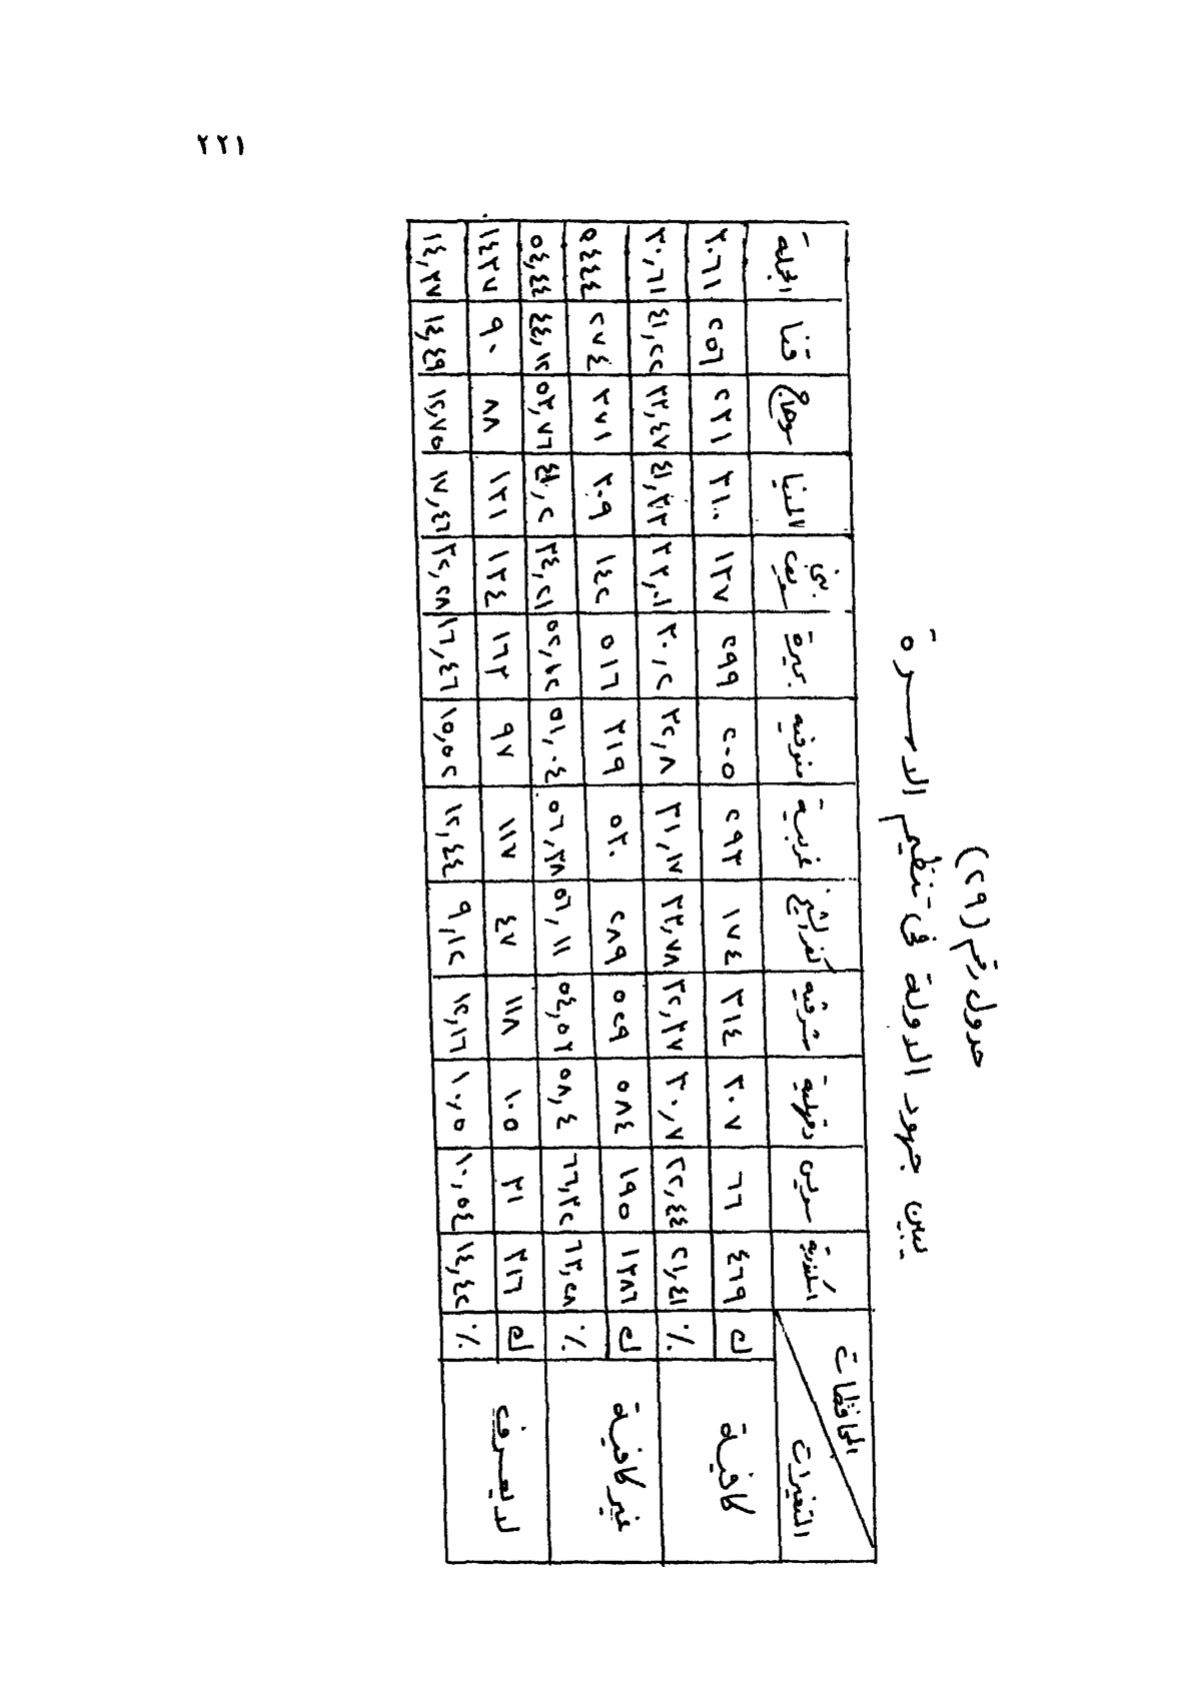 ٢٢١
جدول رقم (٢٩)
يبين جهود الدولة فى تنظيم الاسرة
المحافظات اسكندرية سويس دقهلية شرقيه كفر الشيخ غربية منوفيه بحيرة بنى سويف المنيا سوهاج قنا الجملة
المتغيرات
كافية ك ٤٦٩ ٦٦ ٣٠٧ ٣١٤ ١٧٤ ٢٩٣ ٢٠٥ ٢٩٩ ١٣٧ ٣١٠ ٢٣١ ٢٥٦ ٣٠٦١
٪ ٢١,٤١ ٢٢,٤٤ ٣٠,٧ ٣٢,٣٧ ٣٣,٧٨ ٣١,١٧ ٣٢,٨ ٣٠,٢ ٣٣,٠١ ٤١,٣٣ ٣٣,٤٧ ٤١,٢٢ ٣٠,٦١
غير كافية ك ١٣٨٦ ١٩٥ ٥٨٤ ٥٢٩ ٢٨٩ ٥٣٠ ٣١٩ ٥١٦ ١٤٢ ٣٠٩ ٣٧١ ٢٧٤ ٥٤٤٤
٪ ٦٣,٢٨ ٦٦,٣٢ ٥٨,٤ ٥٤,٥٣ ٥٦,١١ ٥٦,٣٨ ٥١,٠٤ ٥٢,١٢ ٣٤,٢١ ٤١,٢ ٥٣,٧٦ ٤٤,١٢ ٥٤,٤٤
لا يعرف ك ٣١٦ ٣١ ١٠٥ ١١٨ ٤٧ ١١٧ ٩٧ ١٦٣ ١٣٤ ١٣١ ٨٨ ٩٠ ١٤٣٧
٪ ١٤,٤٢ ١٠,٥٤ ١٠,٥ ١٢,١٦ ٩,١٢ ١٢,٤٤ ١٥,٥٢ ١٦,٤٦ ٣٢,٢٨ ١٧,٤٦ ١٢,٧٥ ١٤,٤٩ ١٤,٣٧